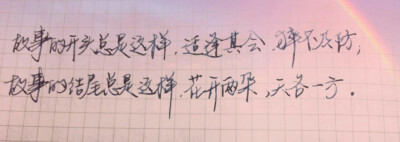 故事的开头总是这样,适逢其会,猝不及防;
故事的结尾总是这样,花开两朵,天各一方。